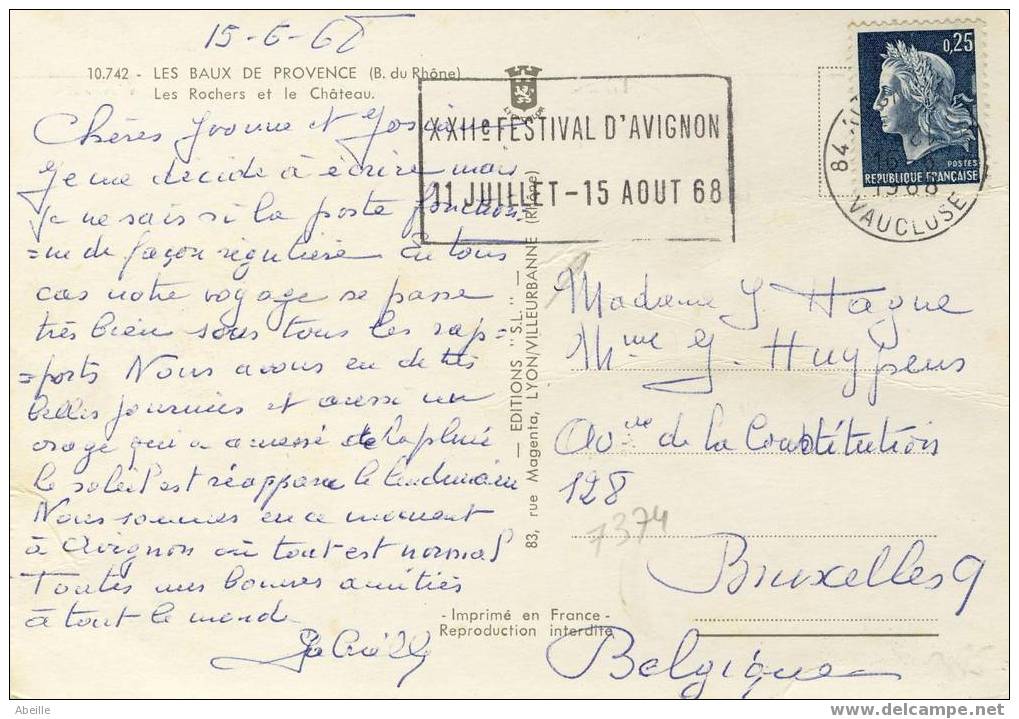 15-6-68
10.742 - LES BAUX DE PROVENCE (B. du Rhône)
Les Rochers et le Château.
Chères Yvonne et
Je me décide à écrire mais
je ne sais si la poste fonction
=ne de façon régulière En tous
cas notre voyage se passe
très bien sous tous les rap=
=ports Nous avons eu de très
belles journées et aussi un
orage qui a amené de la pluie
le soleil est réapparu le lendemain
Nous sommes en ce moment
à Avignon où tout est normal
Toutes mes bonnes amitiés
à tout le monde
XXIIe FESTIVAL D'AVIGNON
11 JUILLET - 15 AOUT 68
0,25
POSTES
REPUBLIQUE FRANÇAISE
84
16
1968
VAUCLUSE
— EDITIONS "S.L." —
83, rue Magenta, LYON/VILLEURBANNE (Rhône)
Madame J. Hayne
Mme J. Huygens
Avue de la Constitution
128
7374
Bruxelles 9
Belgique
- Imprimé en France -
Reproduction interdite
Abeille
www.delcampe.net